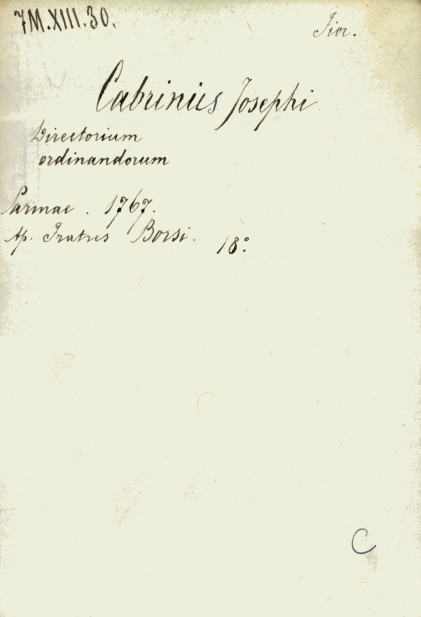 7M.XIII.30.
Fior.
Cabrinius Josephi
Directorium
ordinandorum
Parmae. 1767.
Ap. Fratres Borsi. 18°
C